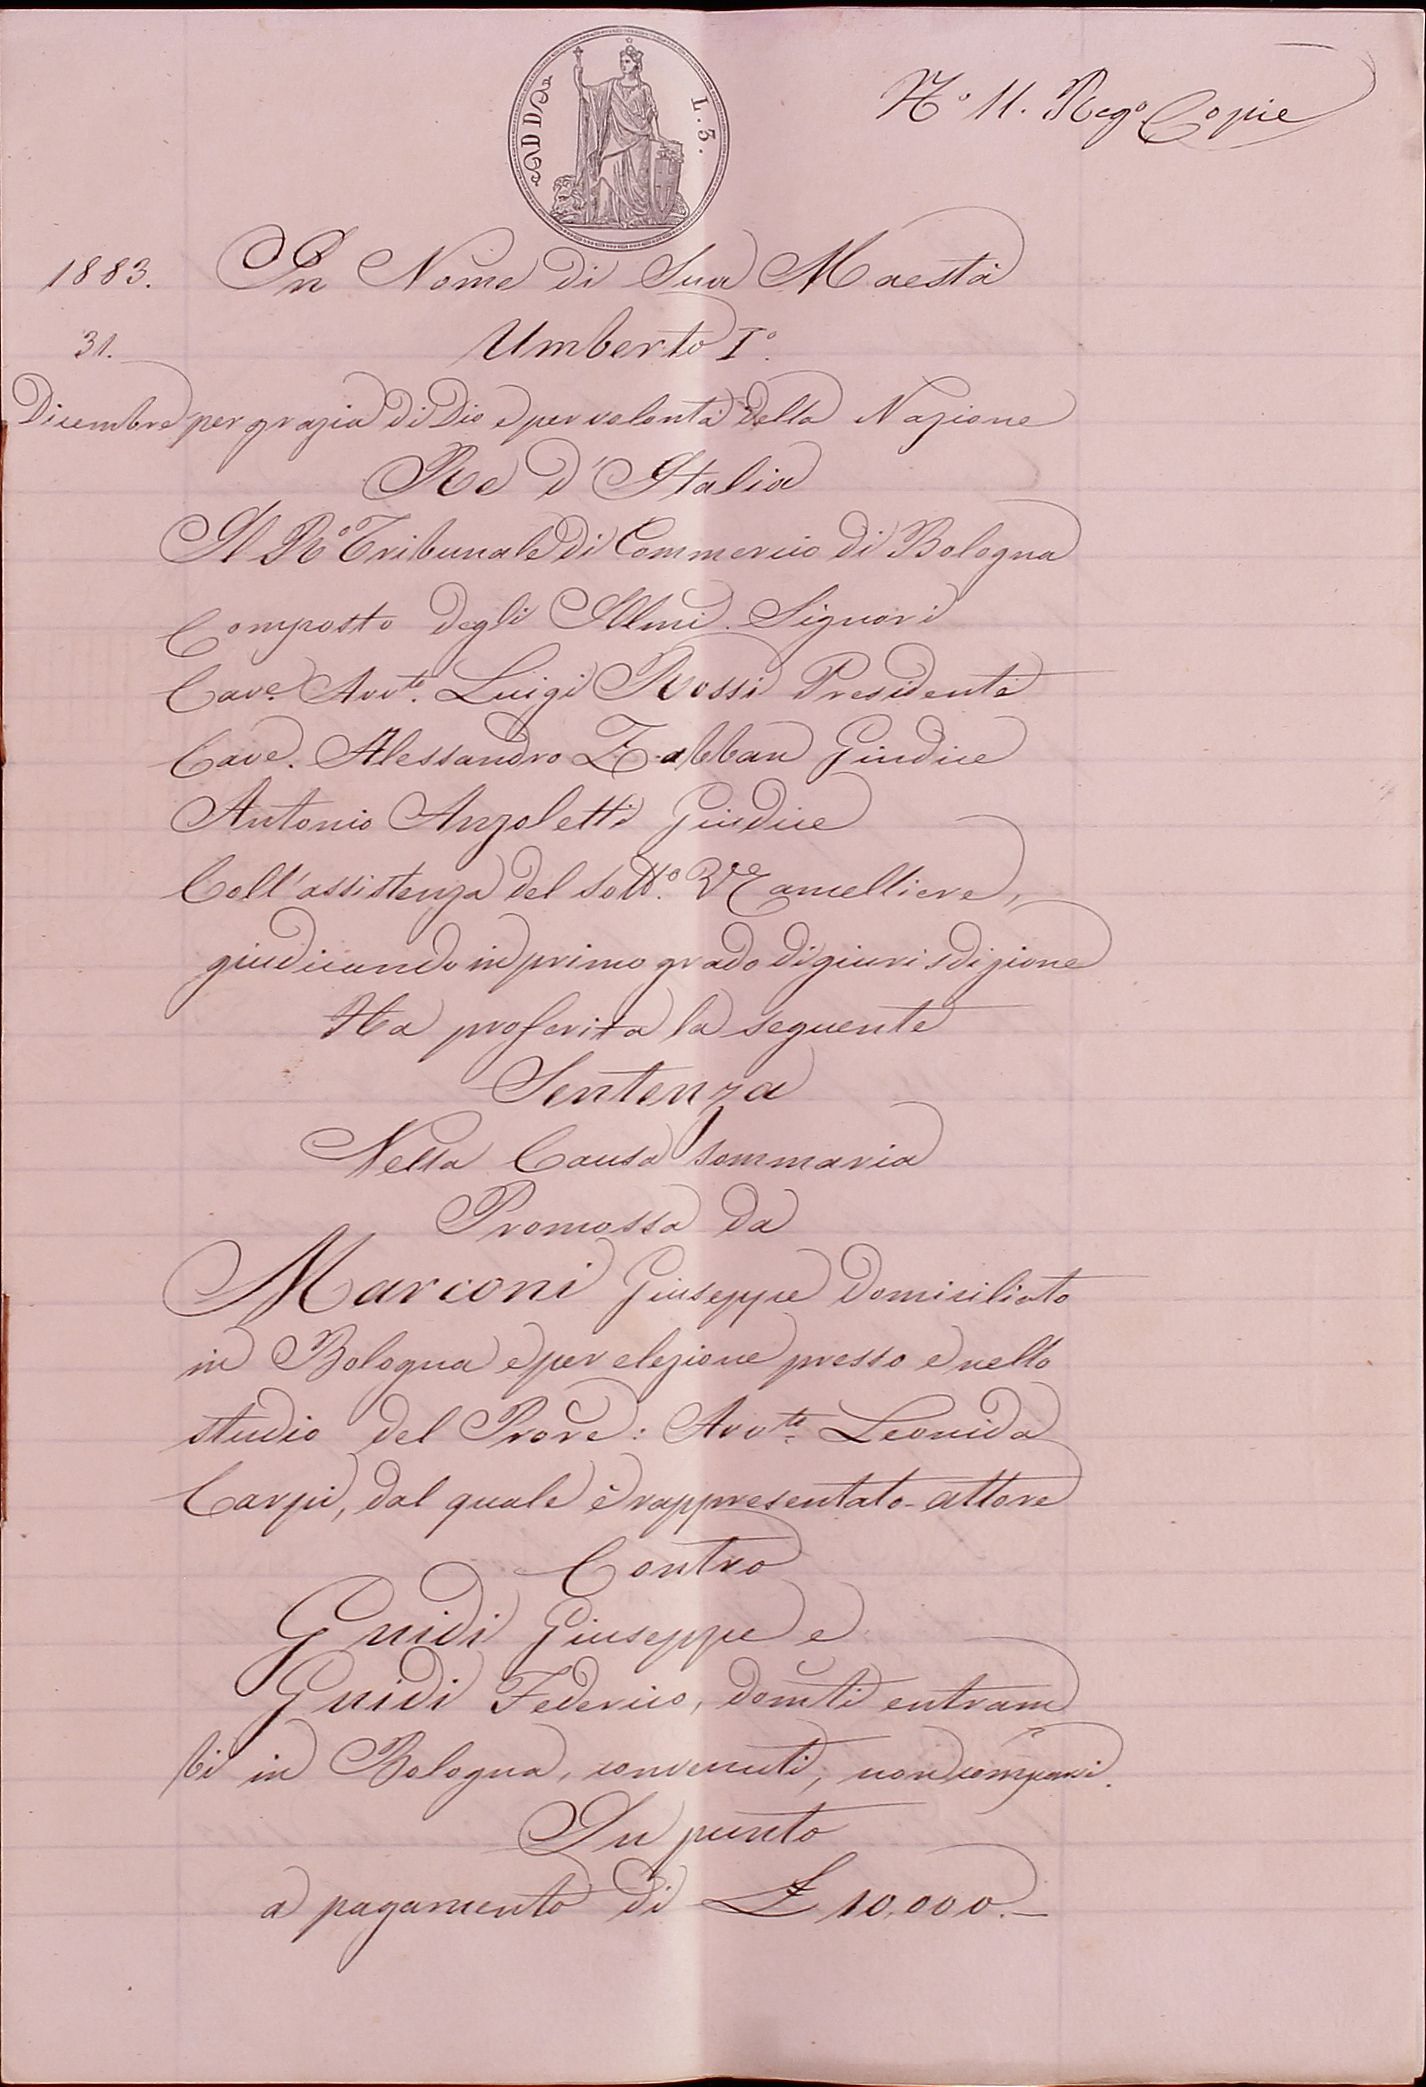 L. 3.
N.º 11. Regº Copie
1883. In Nome di Sua Maestà
31. Umberto Iº.
Dicembre per grazia di Dio e per volontà della Nazione
Re d'Italia
Il Rº Tribunale di Commercio di Bologna
Composto degli Illmi. Signori
Cave. Avvto. Luigi Rossi Presidente
Cave. Alessandro Zabban Giudice
Antonio Anzoletti Giudice
Coll'assistenza del sottº. VCancelliere,
giudicando in primo grado di giurisdizione
Ha proferita la seguente
Sentenza
Nella Causa sommaria
Promossa da
Marconi Giuseppe domiciliato
in Bologna e per elezione presso e nello
studio del Prore: Avvto. Leonida
Carpi, dal quale è rappresentato - attore
Contro
Guidi Giuseppe e
Guidi Federico, domti entram
bi in Bologna, convenuti, non compari.
In punto
a pagamento di £ 10,000.—